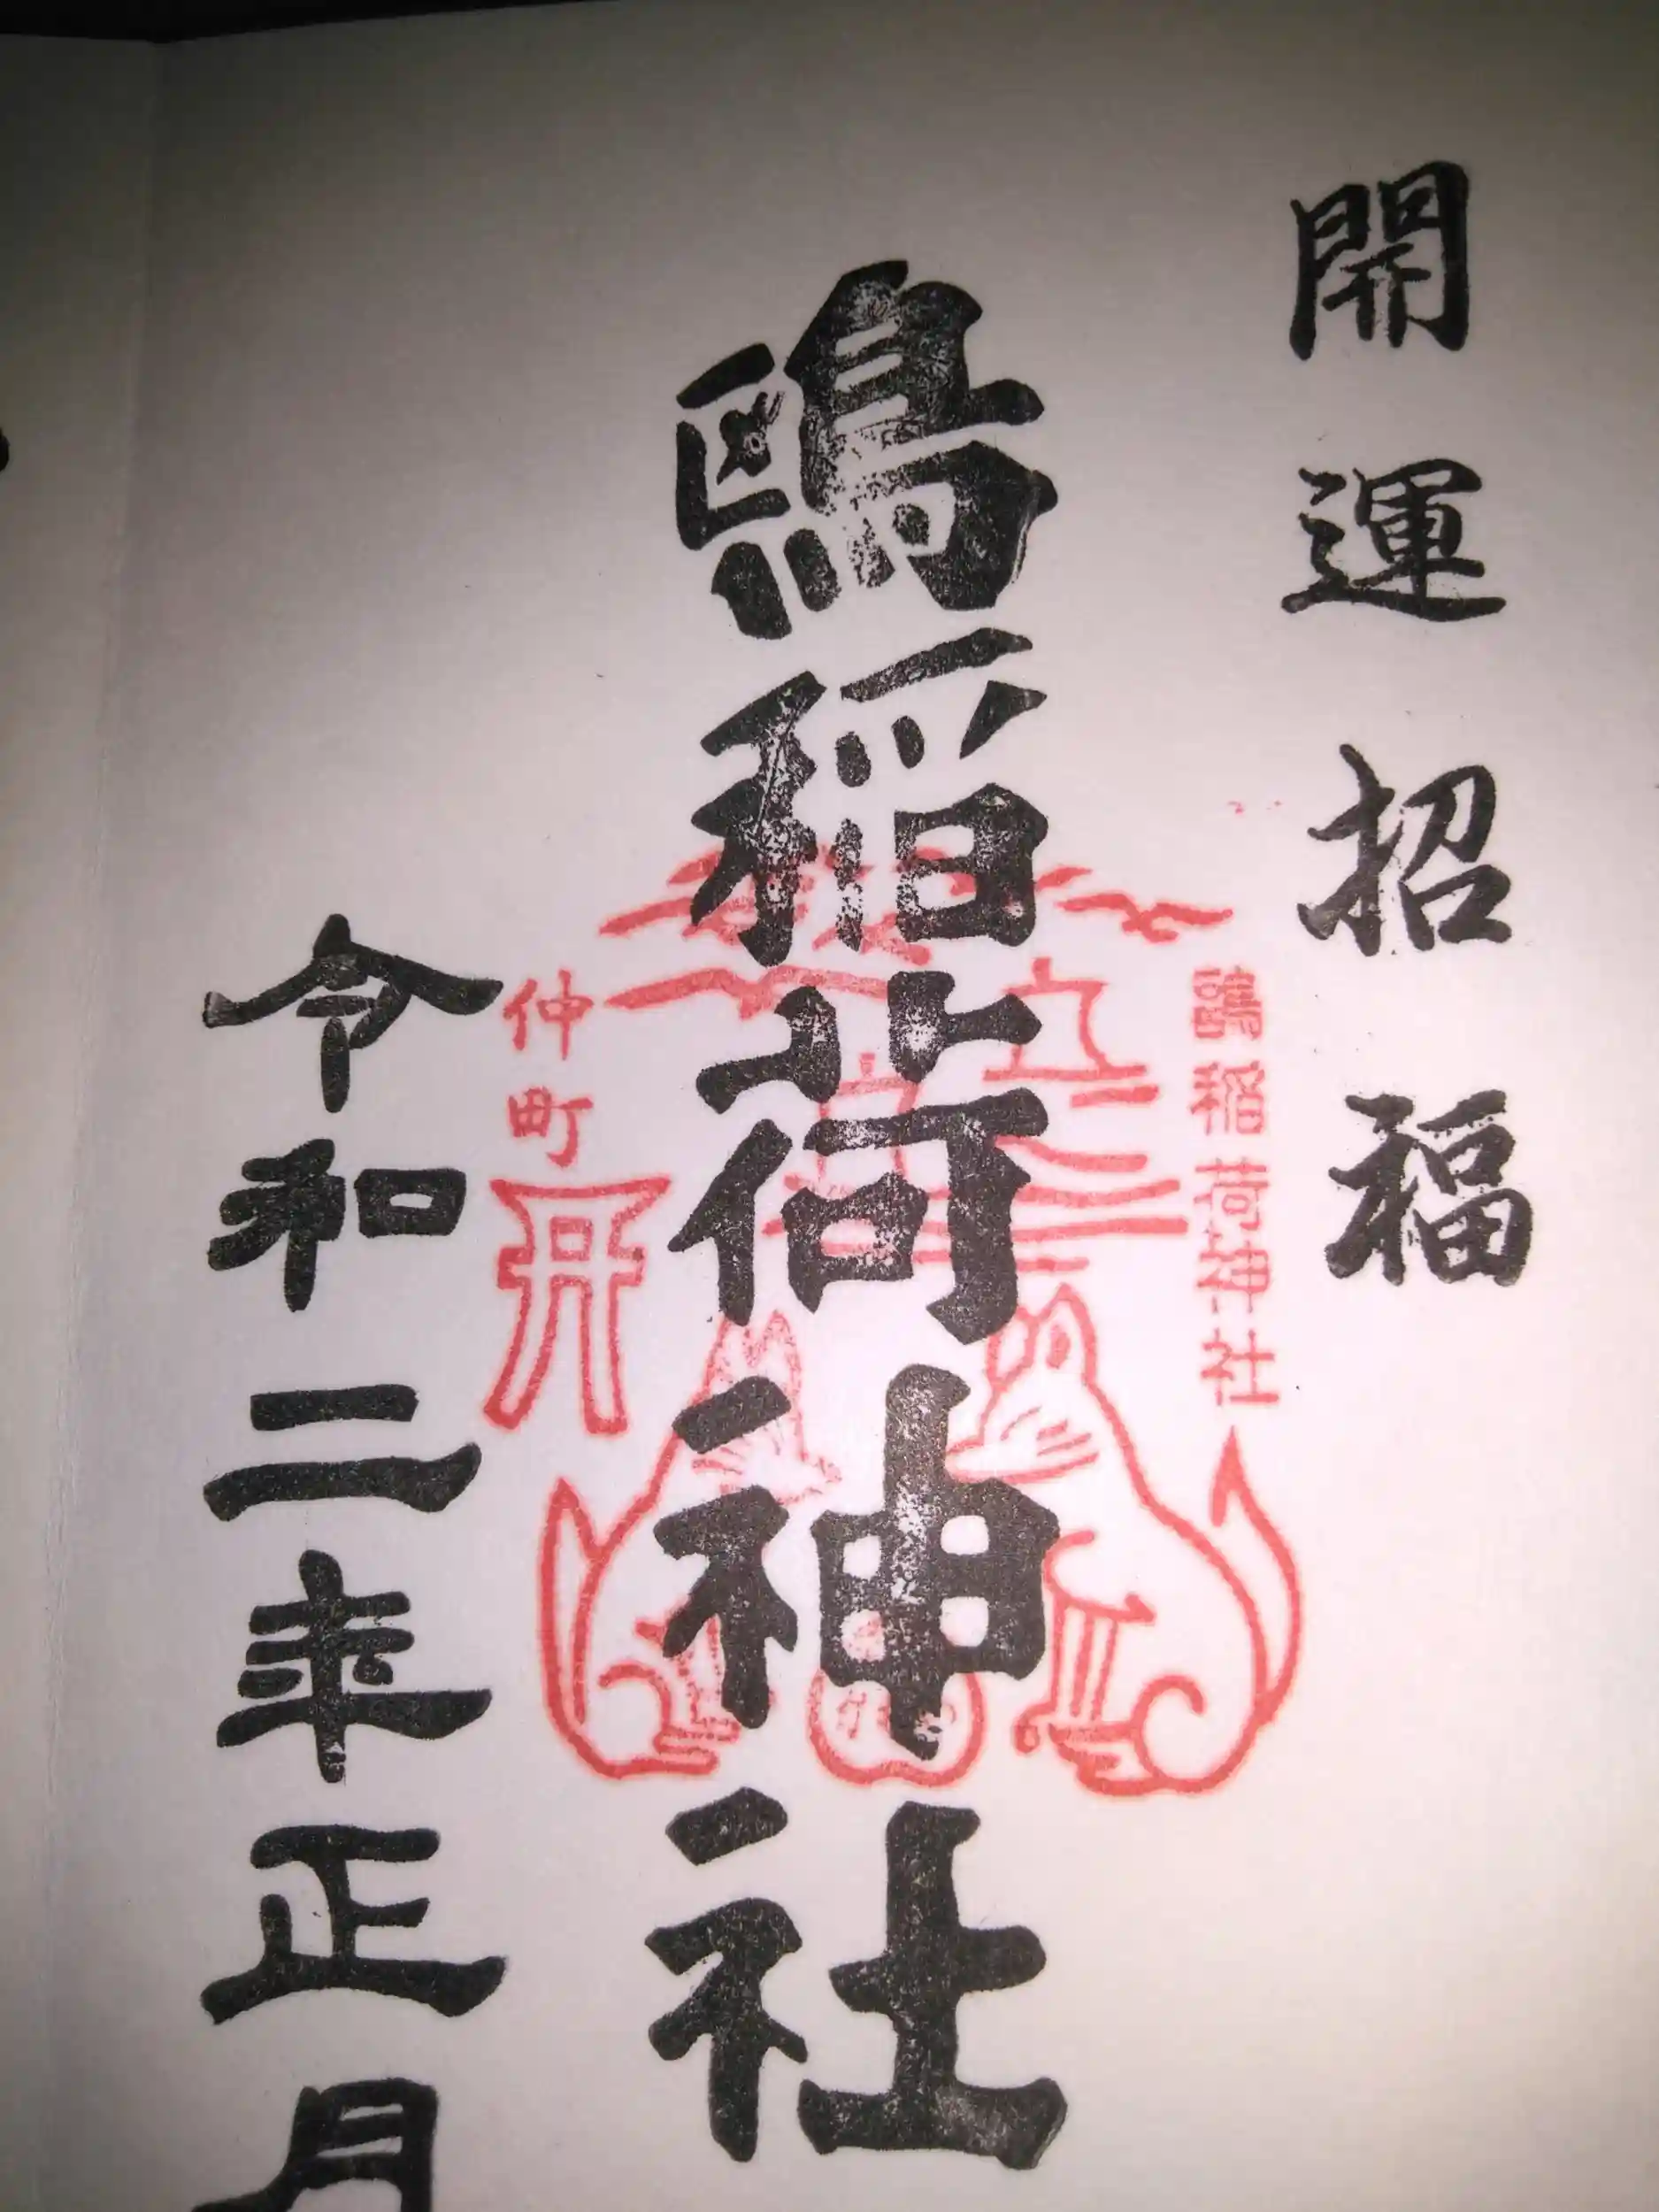 開運招福
鷗稲荷神社
鴎稲荷神社
仲町
令和二年正月